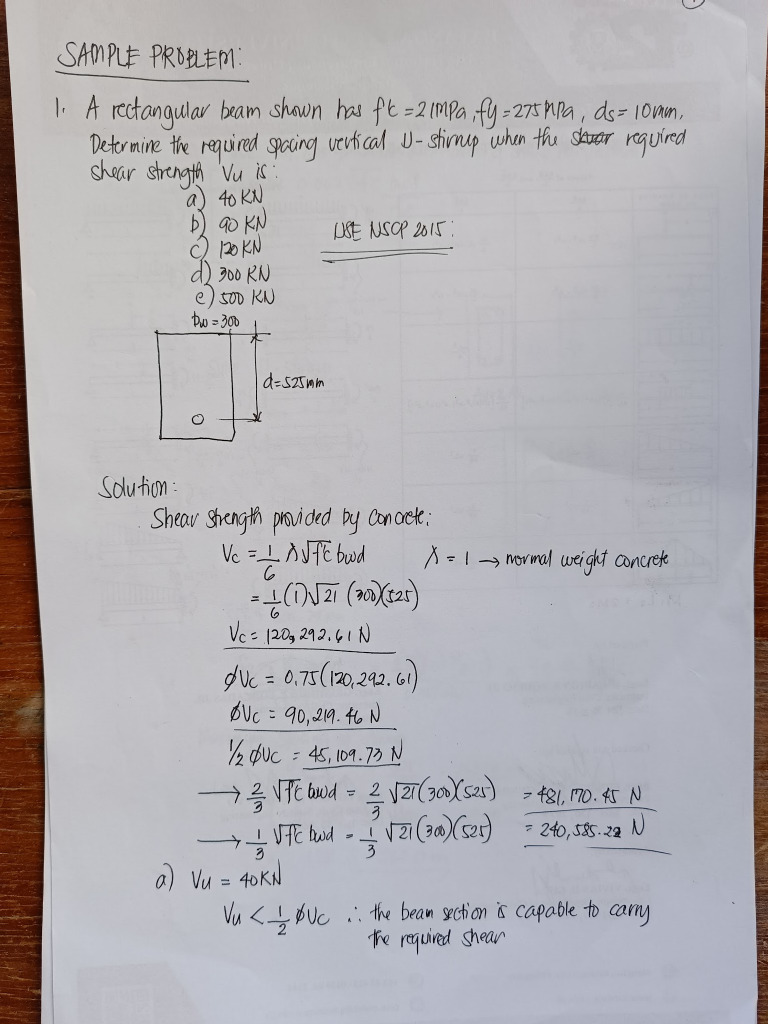 SAMPLE PROBLEM:
1. A rectangular beam shown has f'c = 21MPa, fy = 275MPa, ds = 10mm.
Determine the required spacing vertical U-stirrup when the required
shear strength Vu is:
a) 40 KN
b) 90 KN
USE NSCP 2015:
c) 120 KN
d) 300 KN
e) 500 KN
bw = 300
d=525mm
Solution:
Shear strength provided by concrete:
Vc = 1/6 λ√f'c bwd λ = 1 → normal weight concrete
= 1/6 (1)√21 (300)(525)
Vc = 120,292.61 N
ØVc = 0.75(120,292.61)
ØVc = 90,219.46 N
1/2 ØVc = 45,109.73 N
→ 2/3 √f'c bwd = 2/3 √21(300)(525) = 481,170.45 N
→ 1/3 √f'c bwd = 1/3 √21(300)(525) = 240,585.22 N
a) Vu = 40KN
Vu < 1/2 ØVc ∴ the beam section is capable to carry
the required shear